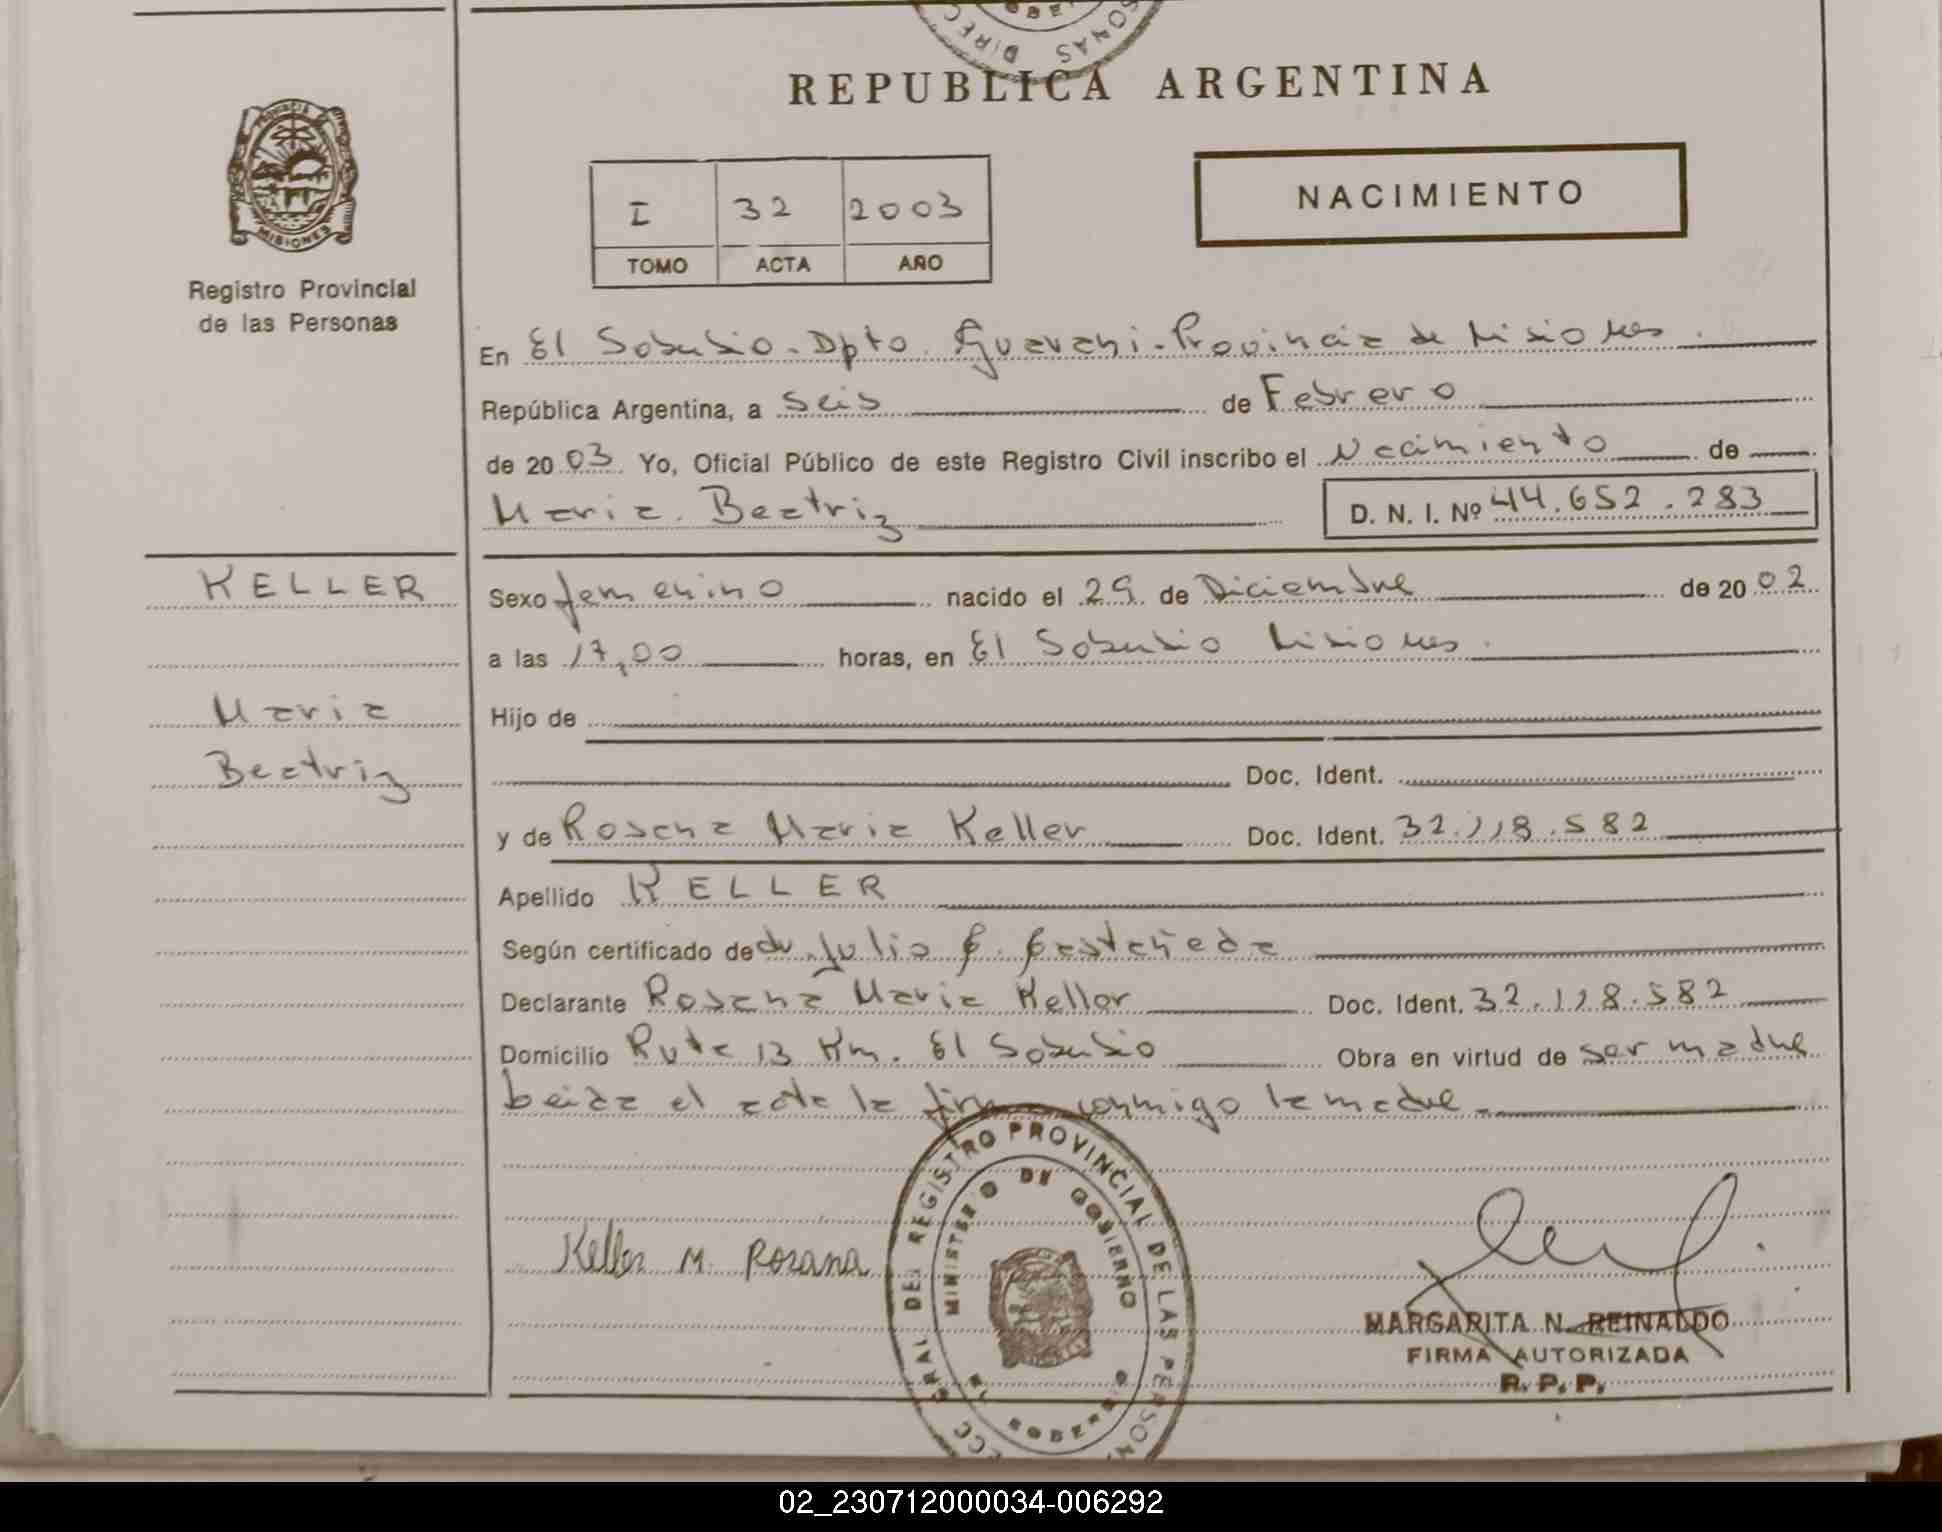 REPUBLICA ARGENTINA
PROVINCIA DE MISIONES
Registro Provincial
de las Personas
I 32 2003
TOMO ACTA AÑO
NACIMIENTO
En El Soberbio. Dpto. Guarani. Provincia de Misiones.
República Argentina, a seis de Febrero
de 2003 Yo, Oficial Público de este Registro Civil inscribo el Nacimiento de
Maria Beatriz D. N. I. Nº 44.652.283
KELLER
Maria
Beatriz
Sexo femenino nacido el 29 de Diciembre de 2002
a las 17,00 horas, en El Soberbio Misiones.
Hijo de
Doc. Ident.
y de Rosana Maria Keller Doc. Ident. 32.118.582
Apellido KELLER
Según certificado de dr. Julio C. Castañeda
Declarante Rosana Maria Keller Doc. Ident. 32.118.582
Domicilio Ruta 13 Km. El Soberbio Obra en virtud de ser madre
Leida el acta la firma conmigo la madre.
Keller M. Rosana
REGISTRO PROVINCIAL DE LAS PERSON
MINISTERIO DE GOBIERNO
MARGARITA N. REINALDO
FIRMA AUTORIZADA
R. P. P.
02_230712000034-006292